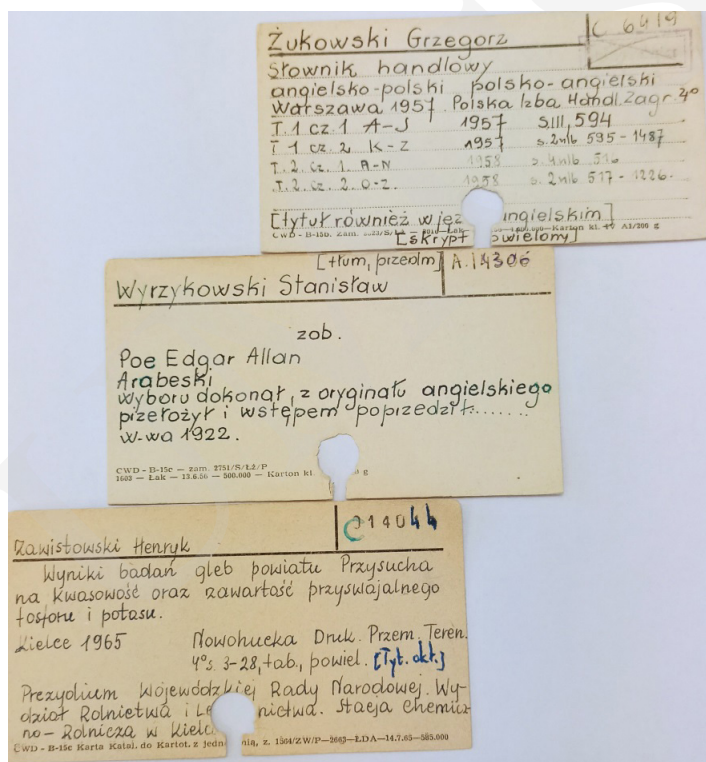 Żukowski Grzegorz
C 6419
Słownik handlowy
angielsko-polski polsko-angielski
Warszawa 1957 Polska Izba Handl. Zagr. 4°
T. 1 cz. 1 A-J 1957 s. III, 594
T 1 cz. 2 K-Z 1957 s. 2nlb 595-1487
T. 2. cz. 1. A-N 1958 s. 4nlb 516
T. 2. cz. 2. O-Z. 1958 s. 2nlb 517-1226.
[tytuł również w jęz ngielskim]
[skrypt owielony]
CWD - B-15b. Zam. Karton kl. A1/200 g
[tłum, przedm] A. 14306
Wyrzykowski Stanisław
zob.
Poe Edgar Allan
Arabeski
wyboru dokonał, z oryginału angielskiego
przełożył i wstępem poprzedził.......
W-wa 1922.
CWD - B-15c — zam. 2751/S/ŁZ/P
1603 — Łak — 13.6.56 — 500.000 — Karton kl g
C 014044
Zawistowski Henryk
Wyniki badań gleb powiatu Przysucha
na kwasowość oraz zawartość przyswajalnego
fosforu i potasu.
Kielce 1965 Nowohucka Druk. Przem. Teren.
4° s. 3-28, tab., powiel. [Tyt. okł.]
Prezydium Wojewódzkiej Rady Narodowej. Wy-
dział Rolnictwa i Le nictwa. Stacja Chemicz
no-Rolnicza w Kielc
CWD - B-15c Karta Katal. do Kartot. z jedn nią, z. 1504/ZW/P—2663—ŁDA—14.7.65—585.000